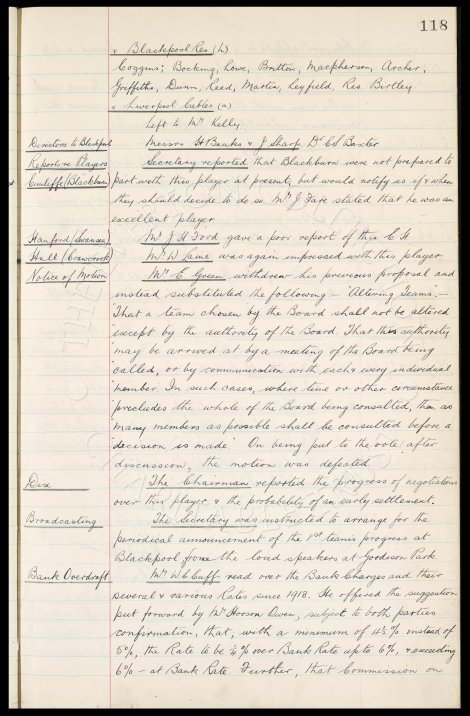 118
v Blackpool Res (h)
Coggins; Bocking, Lowe, Britton, Macpherson, Archer;
Griffiths, Dunn, Reed, Martin, Leyfield, Res. Birtley
v Liverpool Cables (a)
Left to Mr Kelly
Directors to Blackpool Messrs H Banks & J Sharp, Dr C S Baxter
Reports re Players Secretary reported that Blackburn were not prepared to
Cunliffe (Blackburn) part with this player at present, but would notify us if & when
they should decide to do so. Mr J Fare stated that he was an
excellent player
Hanford (Swansea) Mr J H Ford gave a poor report of this C H
Hall (Crawcrook) Mr W Lane was again impressed with this player
Notice of Motion Mr C Green withdrew his previous proposal and
instead substituted the following – "Altering Teams", –
"That a team chosen by the Board shall not be altered
"except by the authority of the Board. That this authority
"may be arrived at by a meeting of the Board being
"called, or by communication with each & every individual
"member. In such cases, where time or other circumstance
"precludes the whole of the Board being consulted, then as
"many members as possible shall be consulted before a
"decision is made." On being put to the vote, after
discussion, the motion was defeated.
Dix The Chairman reported the progress of negotiations
over this player & the probability of an early settlement.
Broadcasting The Secretary was instructed to arrange for the
periodical announcement of the 1st team's progress at
Blackpool from the loud speakers at Goodison Park.
Bank Overdraft Mr W.C. Cuff read over the Bank Charges and their
several & various Rates since 1913. He offered the suggestion
put forward by Mr Hooson Owen, subject to both parties
confirmation, that, with a minimum of 4½% instead of
5%, the Rate to be ½% over Bank Rate up to 6%, & exceeding
6% – at Bank Rate. Further, that Commission on